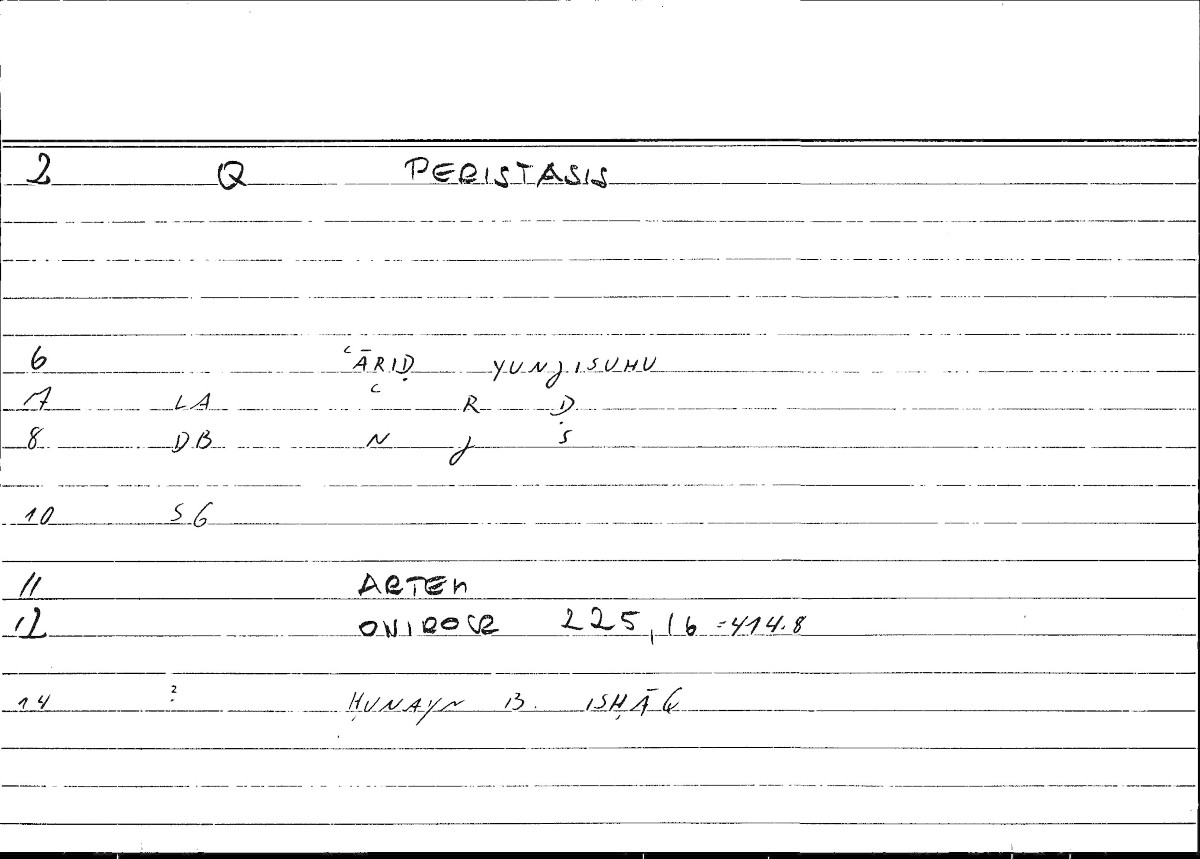 2 Q PERISTASIS
6 ʿĀRIḌ YUNJISUHU
7 LA ʿ R Ḍ
8 DB N J S
10 SG
11 ARTEM
12 ONIROCR 225,16=414.8
14 ? ḤUNAYN B. ISḤĀQ